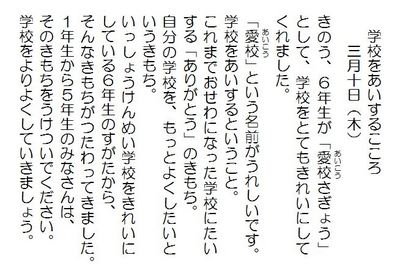 学校をあいするこころ
三月十日（木）
きのう、６年生が「愛校さぎょう」
として、学校をとてもきれいにして
くれました。
「愛校」という名前がうれしいです。
学校をあいするということ。
これまでおせわになった学校にたい
する「ありがとう」のきもち。
自分の学校を、もっとよくしたいと
いうきもち。
いっしょうけんめい学校をきれいに
している６年生のすがたから、
そんなきもちがつたわってきました。
１年生から５年生のみなさんは、
そのきもちをうけついでください。
学校をよりよくしていきましょう。